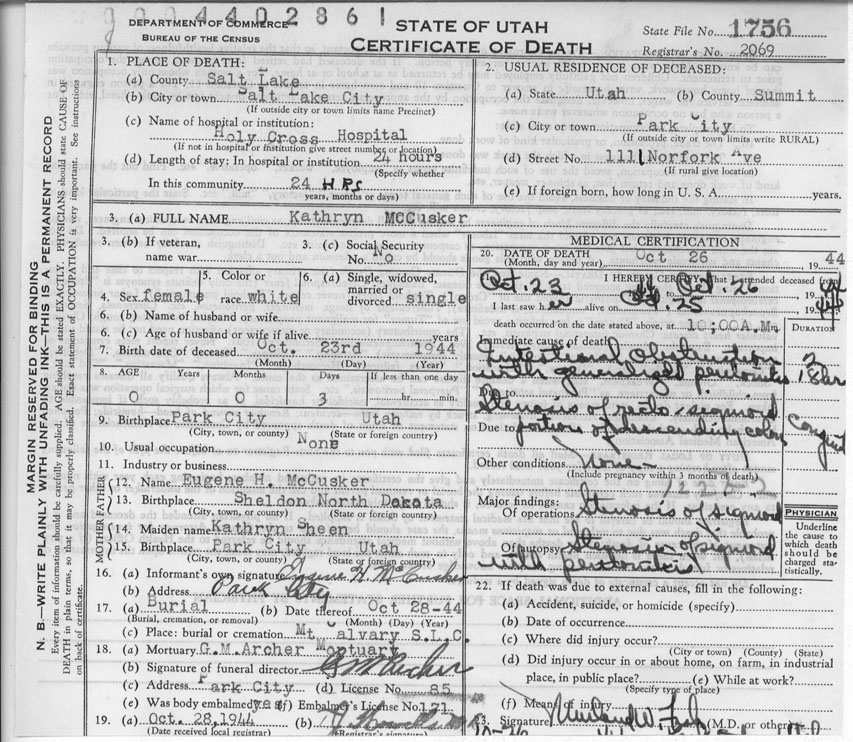 9004402861
DEPARTMENT OF COMMERCE
BUREAU OF THE CENSUS
STATE OF UTAH
CERTIFICATE OF DEATH
State File No. 1756
Registrar's No. 2069
MARGIN RESERVED FOR BINDING
N. B.—WRITE PLAINLY WITH UNFADING INK—THIS IS A PERMANENT RECORD
Every item of information should be carefully supplied. AGE should be stated EXACTLY. PHYSICIANS should state CAUSE OF
DEATH in plain terms, so that it may be properly classified. Exact statement of OCCUPATION is very important. See instructions
on back of certificate.
1. PLACE OF DEATH:
(a) County Salt Lake
(b) City or town Salt Lake City
(If outside city or town limits name Precinct)
(c) Name of hospital or institution:
Holy Cross Hospital
(If not in hospital or institution give street number or location)
(d) Length of stay: In hospital or institution 24 hours
(Specify whether
In this community 24 HRS
years, months or days)
2. USUAL RESIDENCE OF DECEASED:
(a) State Utah (b) County Summit
(c) City or town Park City
(If outside city or town limits write RURAL)
(d) Street No. 1111 Norfork Ave
(If rural give location)
(e) If foreign born, how long in U. S. A. years.
3. (a) FULL NAME Kathryn MCCusker
3. (b) If veteran,
name war
3. (c) Social Security
No. No
4. Sex female
5. Color or
race white
6. (a) Single, widowed,
married or
divorced single
6. (b) Name of husband or wife
6. (c) Age of husband or wife if alive years
7. Birth date of deceased Oct. 23rd 1944
(Month) (Day) (Year)
8. AGE Years Months Days If less than one day
0 0 3 hr. min.
9. Birthplace Park City Utah
(City, town, or county) (State or foreign country)
10. Usual occupation None
11. Industry or business
FATHER
12. Name Eugene H. McCusker
13. Birthplace Sheldon North Dakota
(City, town, or county) (State or foreign country)
MOTHER
14. Maiden name Kathryn Sheen
15. Birthplace Park City Utah
(City, town, or county) (State or foreign country)
16. (a) Informant's own signature Eugene H. McCusker
(b) Address Park City
17. (a) Burial (b) Date thereof Oct 28-44
(Burial, cremation, or removal) (Month) (Day) (Year)
(c) Place: burial or cremation Mt Calvary S.L.C.
18. (a) Mortuary G.M.Archer Mortuary
(b) Signature of funeral director G M Archer
(c) Address Park City (d) License No. 85
(e) Was body embalmed yes (f) Embalmer's License No. 171
19. (a) Oct. 28,1944 (b)
(Date received local registrar) (Registrar's signature)
MEDICAL CERTIFICATION
20. DATE OF DEATH Oct 26 1944
(Month, day and year)
21. I HEREBY CERTIFY, That I attended deceased
Oct. 23 Oct. 26 19
I last saw her alive on Oct. 25 19 44
death occurred on the date stated above, at 10;00A.M.
DURATION
Immediate cause of death
Intestinal obstruction 2
with generalized peritonitis 18 hr
Due to
Stenosis of recto-sigmoid
Due to portion of descending colon
Other conditions None
(Include pregnancy within 3 months of death)
Major findings:
Of operations Stenosis of sigmoid
Of autopsy Stenosis of sigmoid
with peritonitis
PHYSICIAN
Underline
the cause
to which
death
should be
charged sta-
tistically.
22. If death was due to external causes, fill in the following:
(a) Accident, suicide, or homicide (specify)
(b) Date of occurrence
(c) Where did injury occur?
(City or town) (County) (State)
(d) Did injury occur in or about home, on farm, in industrial
place, in public place? (e) While at work?
(Specify type of place)
(f) Means of injury
23. Signature (M.D. or other)